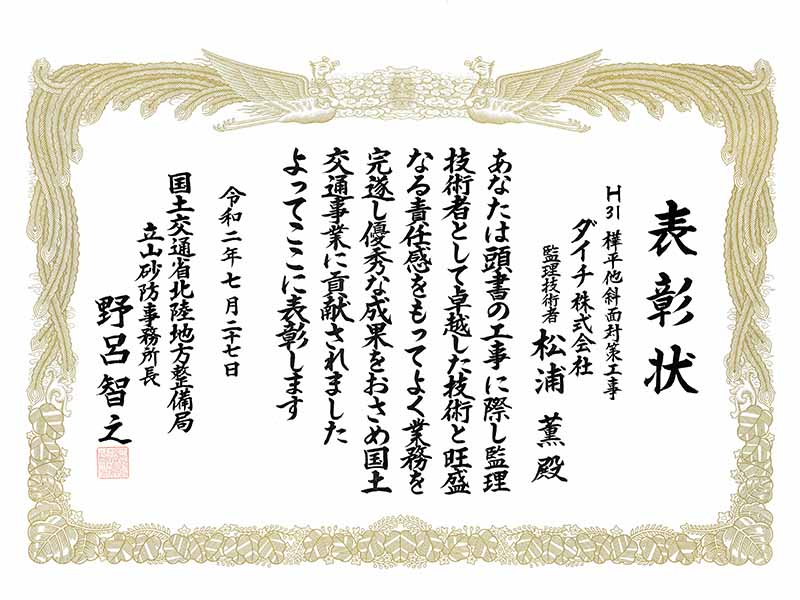 表彰状
H31 樺平他斜面対策工事
ダイチ株式会社
監理技術者 松浦 薫 殿
あなたは頭書の工事に際し監理
技術者として卓越した技術と旺盛
なる責任感をもってよく業務を
完遂し優秀な成果をおさめ国土
交通事業に貢献されました
よってここに表彰します
令和二年七月二十七日
国土交通省北陸地方整備局
立山砂防事務所長
野呂智之